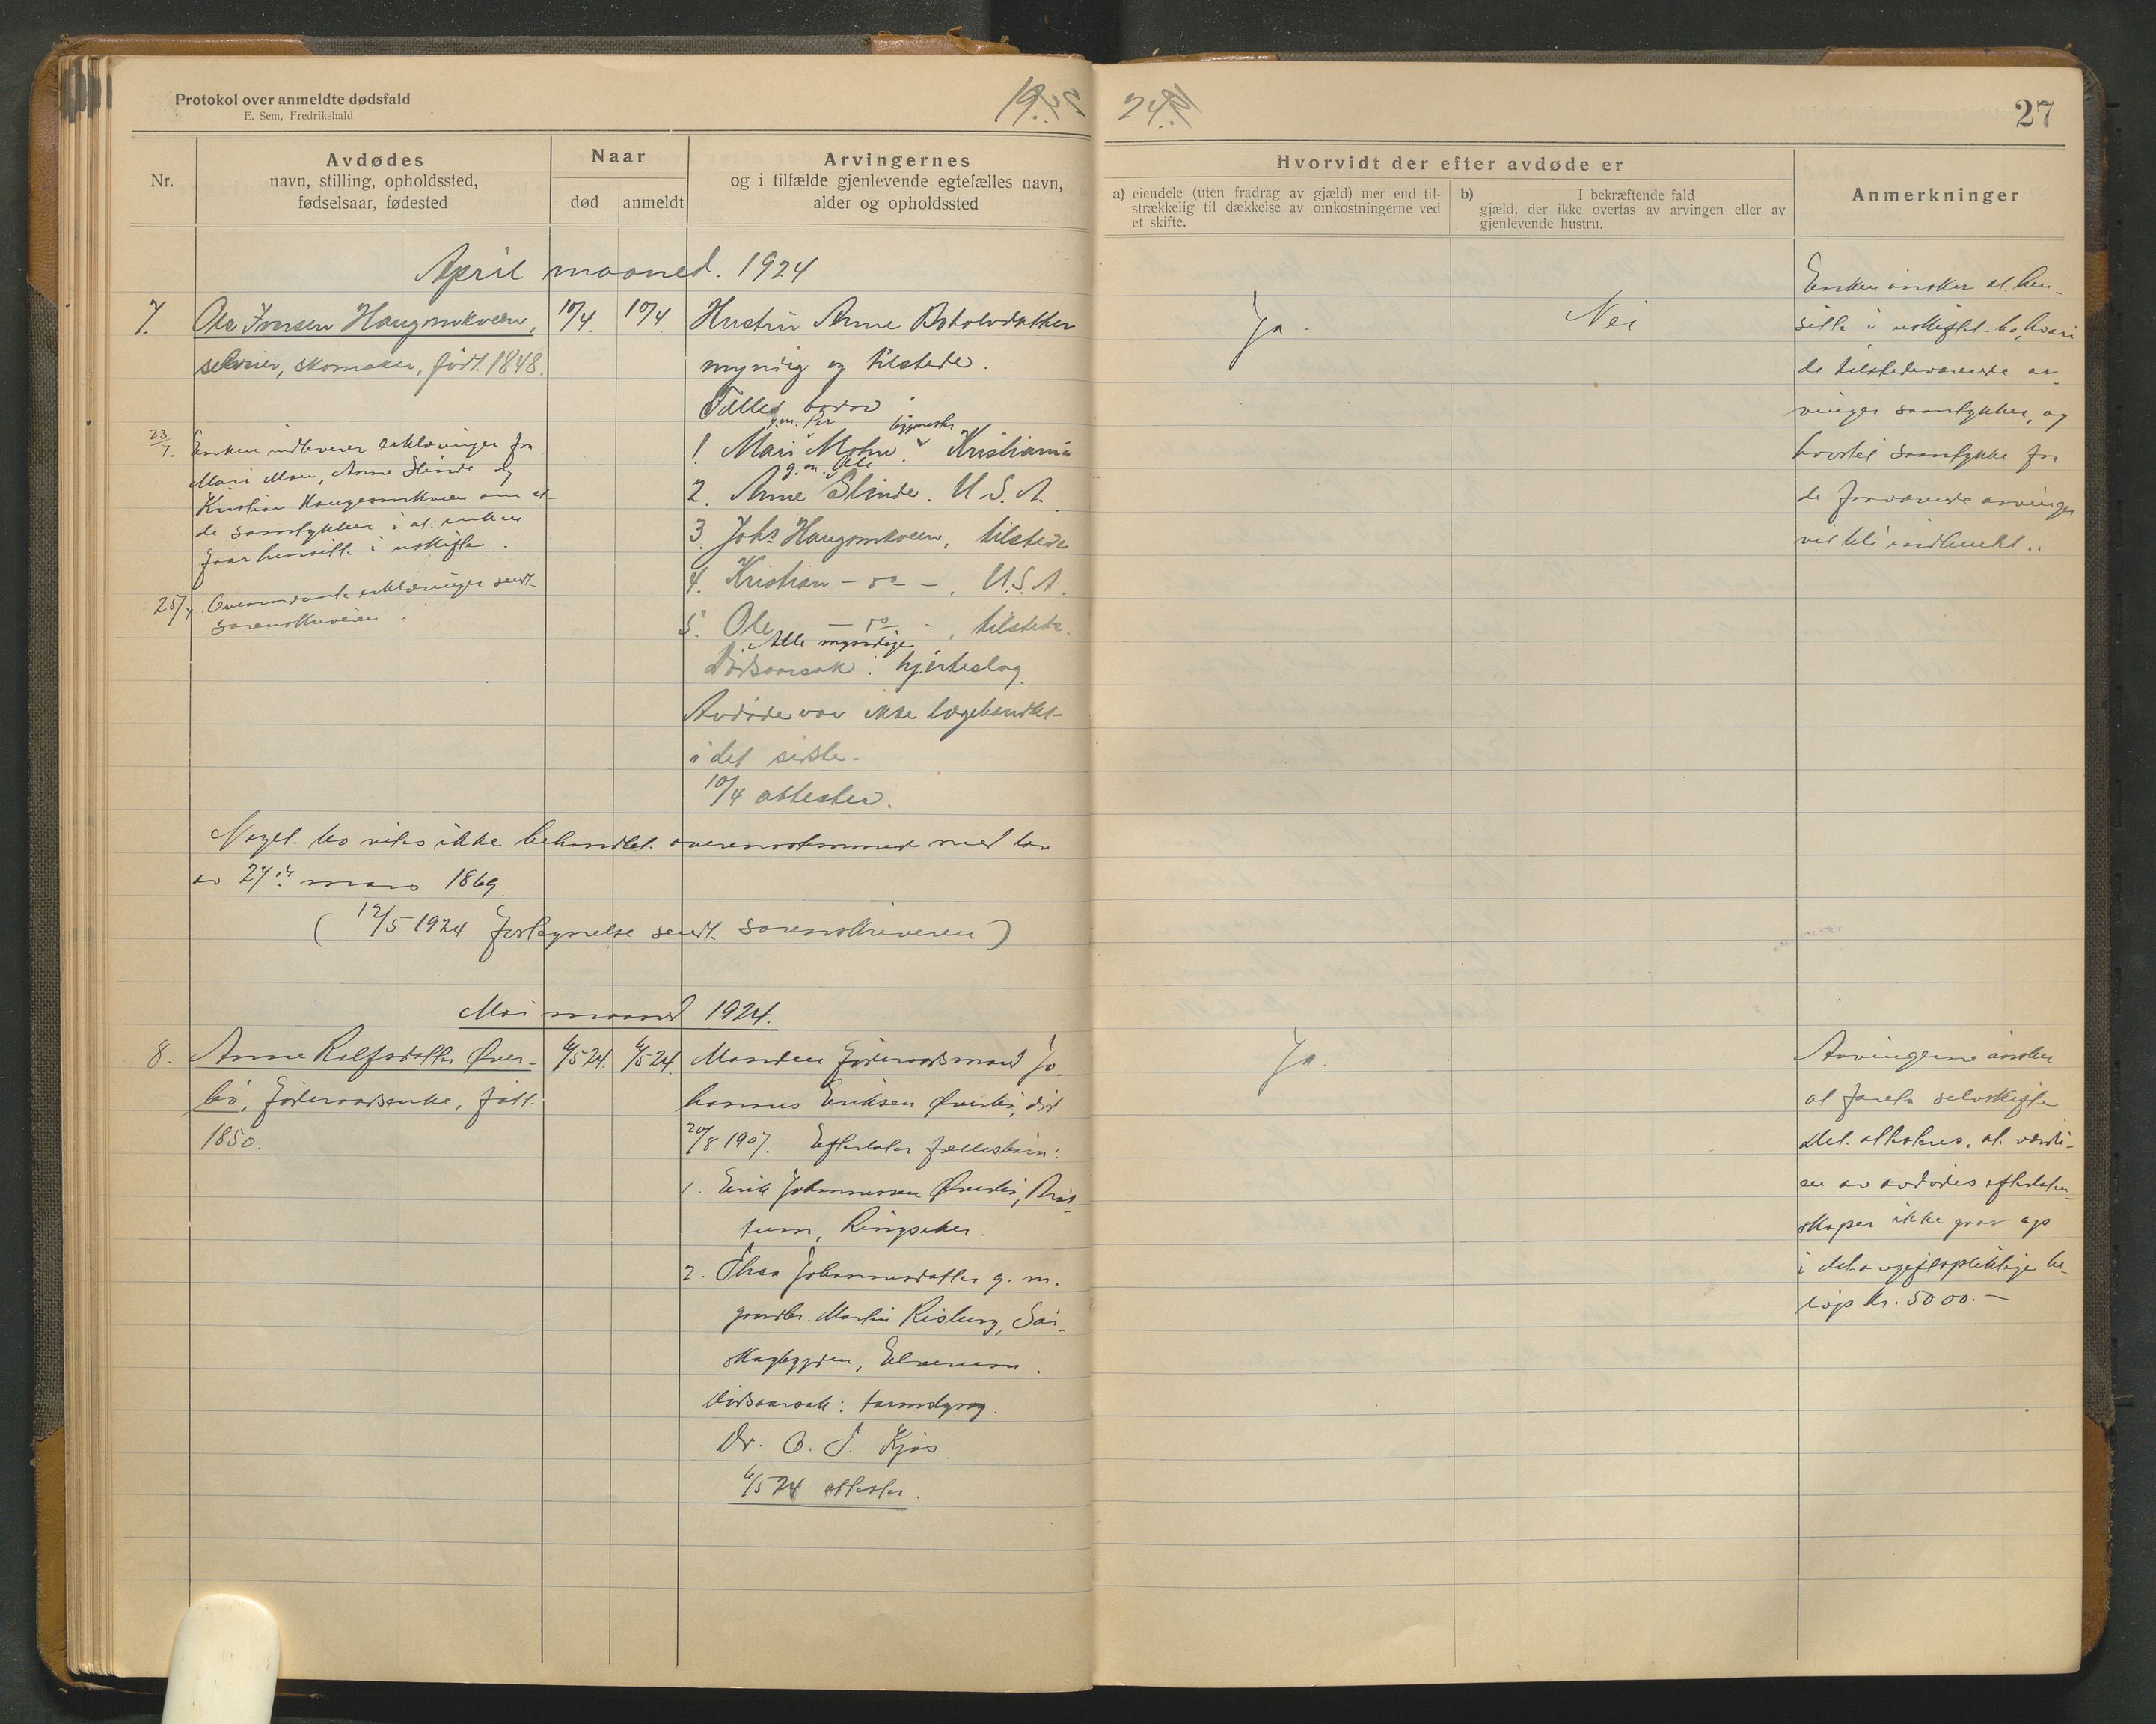 Protokol over anmeldte dødsfald
E. Sem, Fredrikshald
19
24
27
Nr.
Avdødes
navn, stilling, opholdssted,
fødselsaar, fødested
Naar
død
anmeldt
Arvingernes
og i tilfælde gjenlevende egtefælles navn,
alder og opholdssted
Hvorvidt der efter avdøde er
a) eiendele (uten fradrag av gjæld) mer end til-
strækkelig til dækkelse av omkostningerne ved
et skifte.
b) I bekræftende fald
gjæld, der ikke overtas av arvingen eller av
gjenlevende hustru.
Anmerkninger
April maaned. 1924
7. Ole Iversen Haugomkveen,
selveier, skomaker, født 1848.
10/4. 10/4.
Hustru Anne
myndig og tilstede.
Fælles barn:
g.m. Per
1. Mari Mohn. Kristiania
g.m. Ole
2. Anne Slinde. U.S.A.
3. Johs Haugomkveen, tilstede
4. Kristian - do - , U.S.A.
5. Ole - do - , tilstede.
Alle myndige
Dødsaarsak: hjerteslag
Avdøde var ikke lægebehandlet
i det sidste.
10/4 attester.
23/7. Enken indleverer erklæringer fra
Mari Moen, Anne Slinde og
Kristian Haugomkveen om at
de samtykker i at enken
faar hensitte i uskifte.
25/7. Ovennævnte erklæringer sendt
sorenskriveren.
Ja.
Nei
Enken ønsker at hen-
sitte i uskiftet bo, hvori
de tilstedeværende ar-
vinger samtykker, og
hvortil samtykke fra
de fraværende arvinger
vil bli indhentet.
Noget bo vites ikke behandlet overensstemmende med lov
av 24de mars 1869.
(12/5 1924 fortegnelse sendt sorenskriveren)
Mai maaned 1924.
8. Anne Rolfsdatter Øver-
bø, føderaadsenke, født
1850.
6/5 24. 6/5 24.
Manden føderaadsmand Jo-
hannes Eriksen Øverbø, død
20/8 1907. Efterlater fællesbarn:
1. Erik Johannessen Øverbø,
Ringsaker.
2. Thea Johannesdatter g. m.
gaardbr. Martin Risberg, Sør-
skogbygden, Elverum.
Dødsaarsak: tarmslyng.
Dr. O. T. Kjos.
6/5 24 attester.
Ja.
Arvingerne ønsker
at foreta selvskifte
Det attesteres, at værdi-
en av avdødes efterlaten-
skaper ikke gaar op
i det avgiftspliktige be-
løp kr. 5000.-